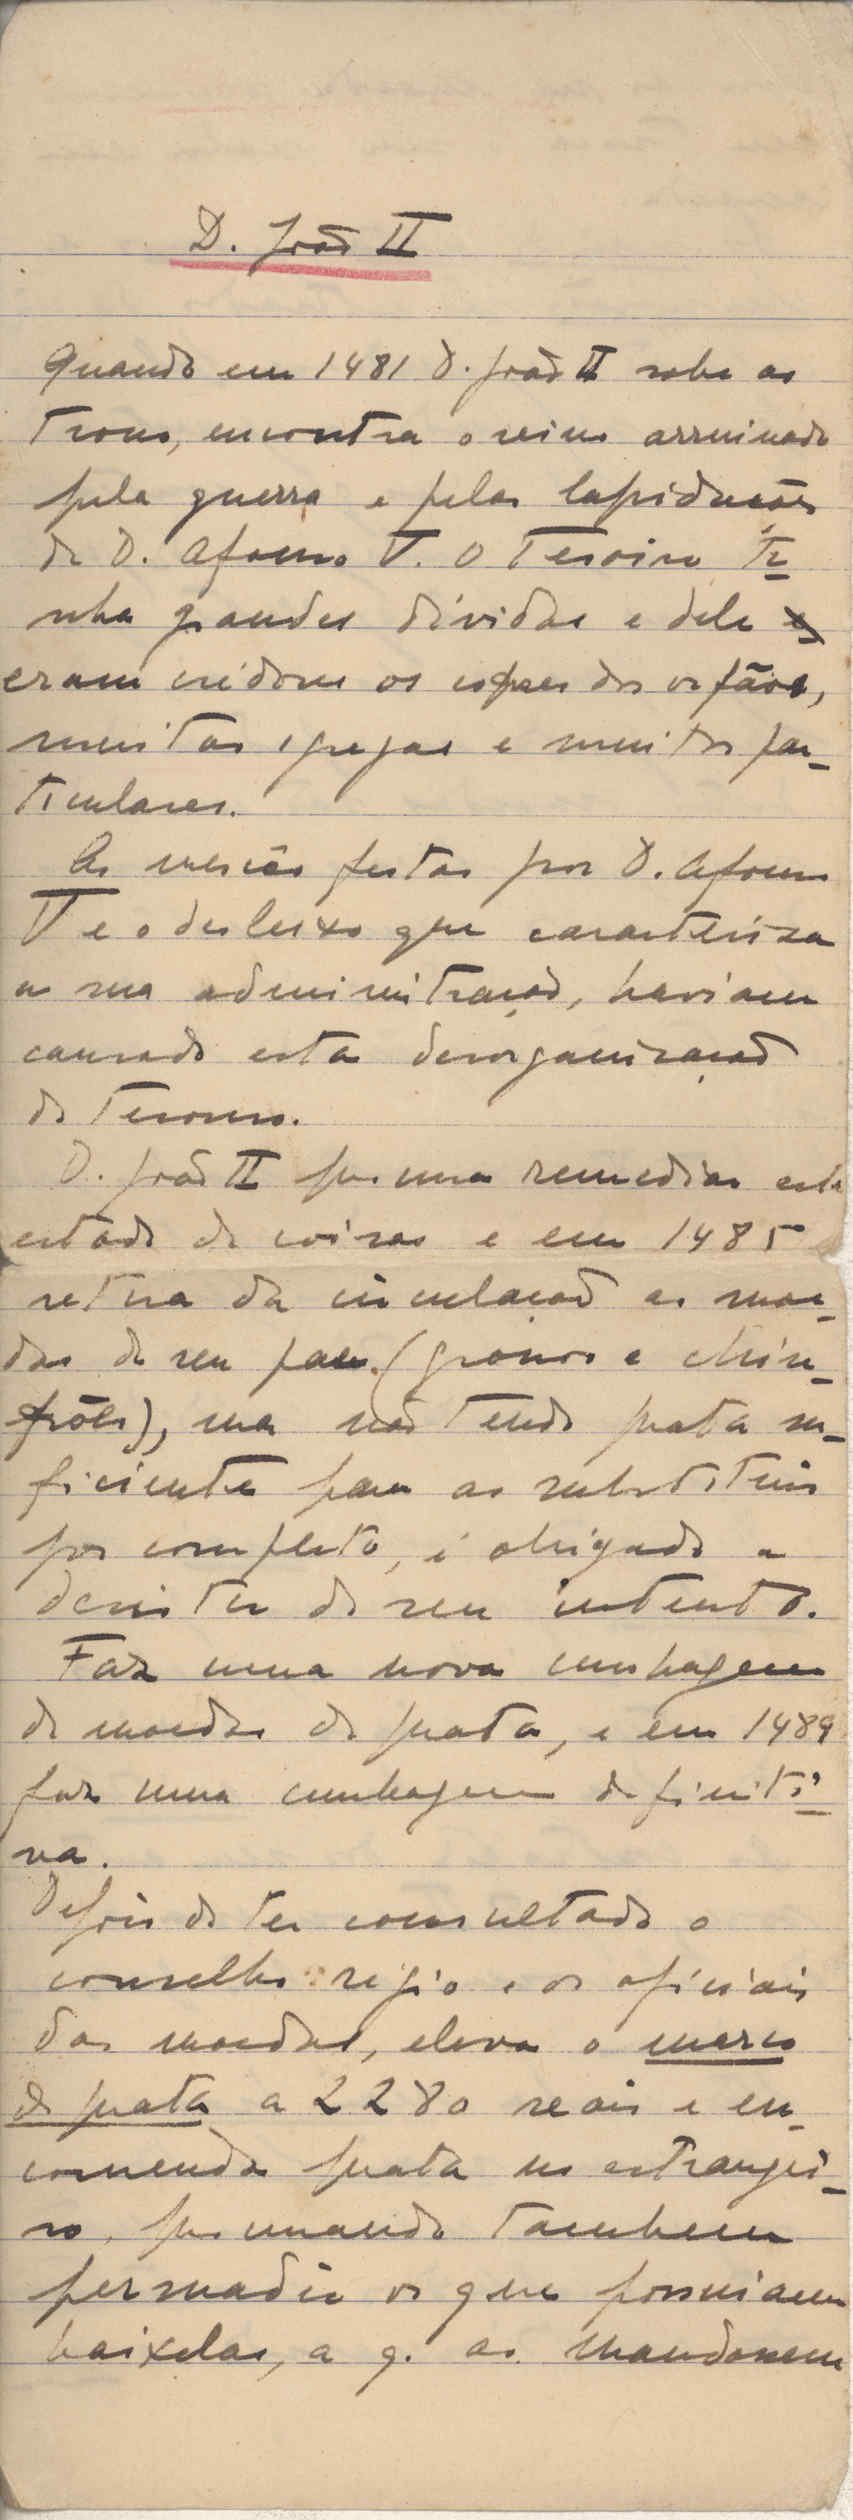 D. João II
Quando em 1481 D. João II sobe ao
trono, encontra o reino arruinado
pela guerra e pelas lapidações
de D. Afonso V. O Tesoiro ti-
nha grandes dívidas e dele
eram credores os cofres dos orfãos,
muitas igrejas e muitos par-
ticulares.
As mercês feitas por D. Afonso
V e o desleixo que caracteriza
a sua administração, haviam
causado esta desorganização
do tesouro.
D. João II procura remediar este
estado de coisas e em 1485
retira da circulação as moe-
das de seu pae (grossos e chin-
frões), mas não tendo prata su-
ficiente para as substituir
por completo, é obrigado a
desistir do seu intento.
Faz uma nova cunhagem
de moedas de prata, e em 1489
faz uma cunhagem definiti-
va.
Depois de ter consultado o
conselho regio e os oficiais
das moedas, eleva o marco
de prata a 2280 reais e en-
comenda prata no estrangei-
ro, procurando tambem
persuadir os que possuiam
baixelas, a q. as mandassem